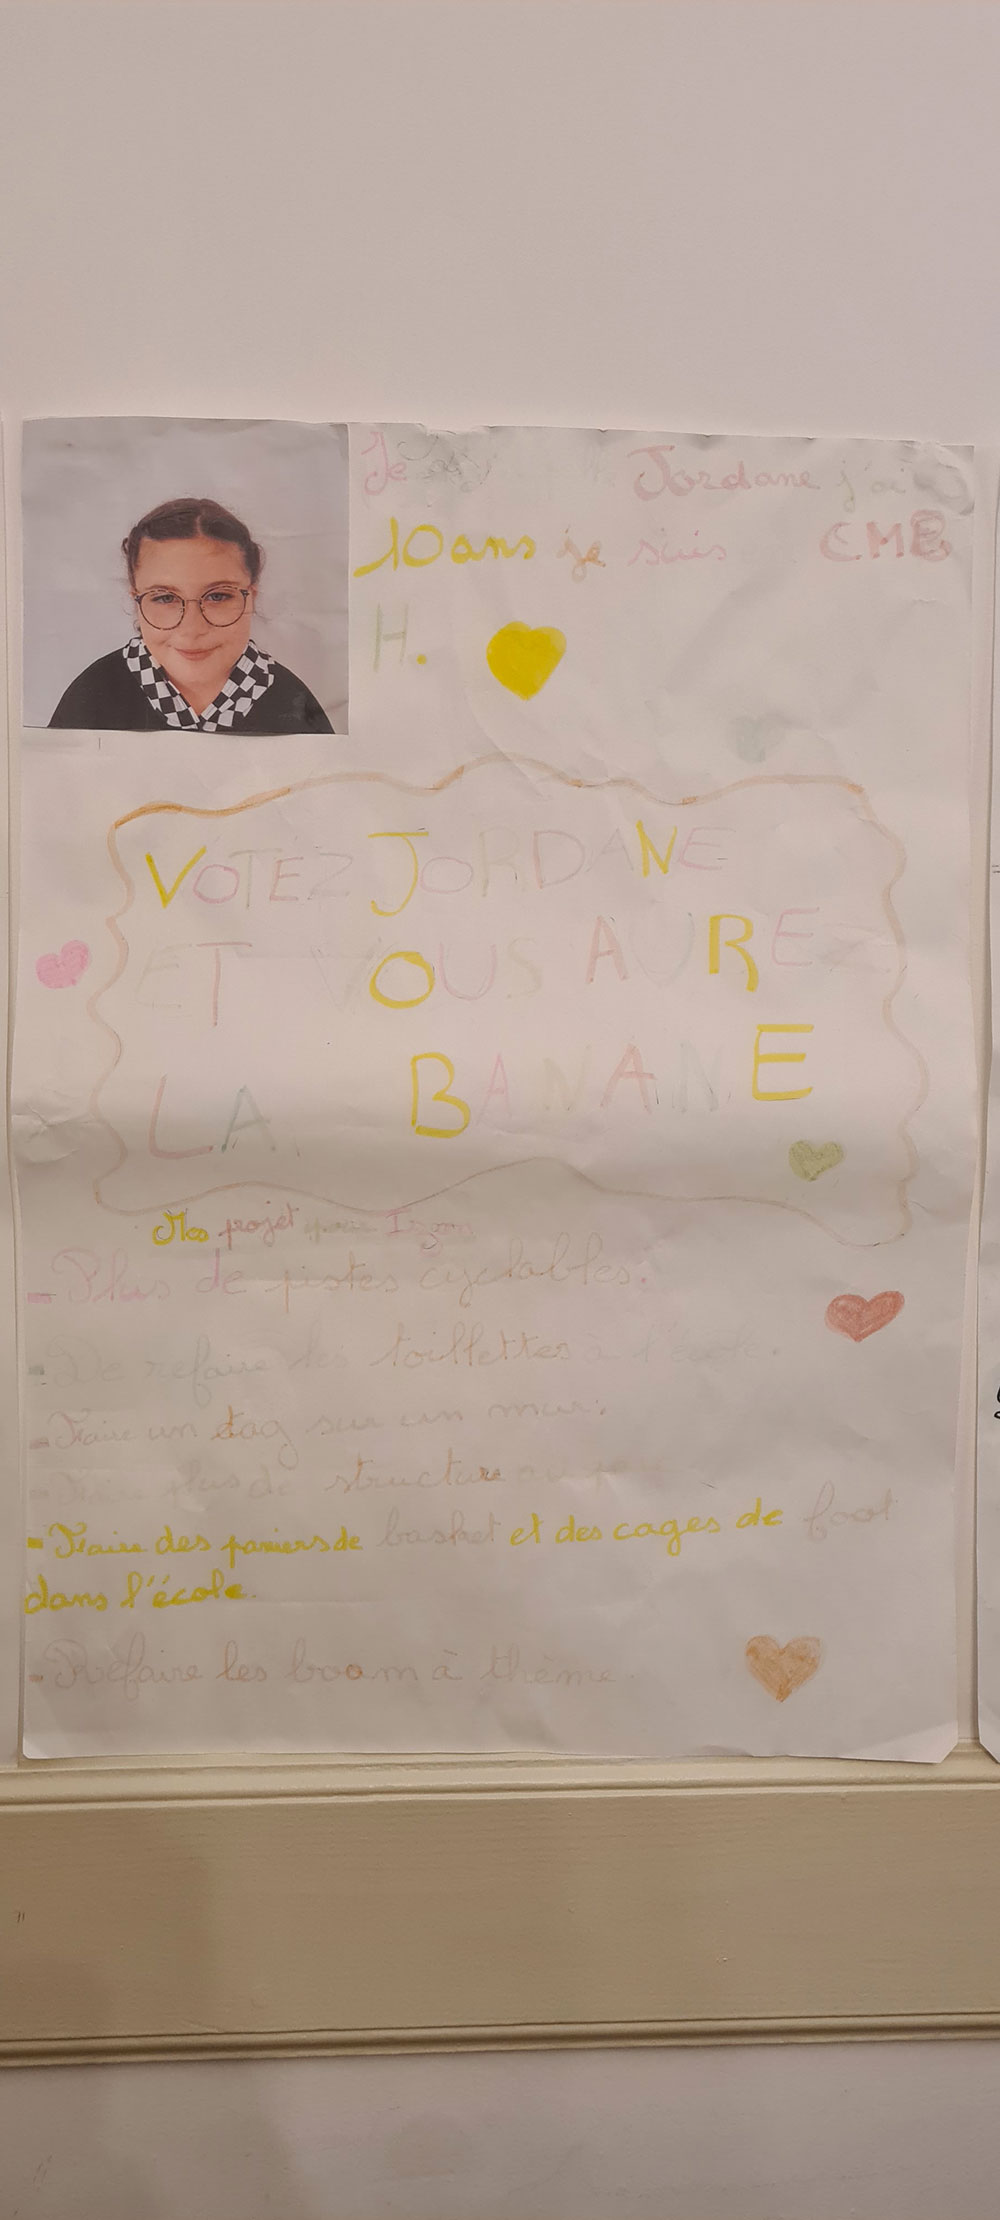 Je Jordane j'ai
10 ans je suis CM
H.
VOTEZ JORDANE
ET VOUS AUREZ
LA BANANE
Mes projet pour Izon
- Plus de pistes cyclables.
- De refaire les toillettes à l'école.
- Faire un tag sur un mur.
- Faire plus de structure
- Faire des paniers de basket et des cages de foot
dans l'école.
- Refaire les boom à thème.